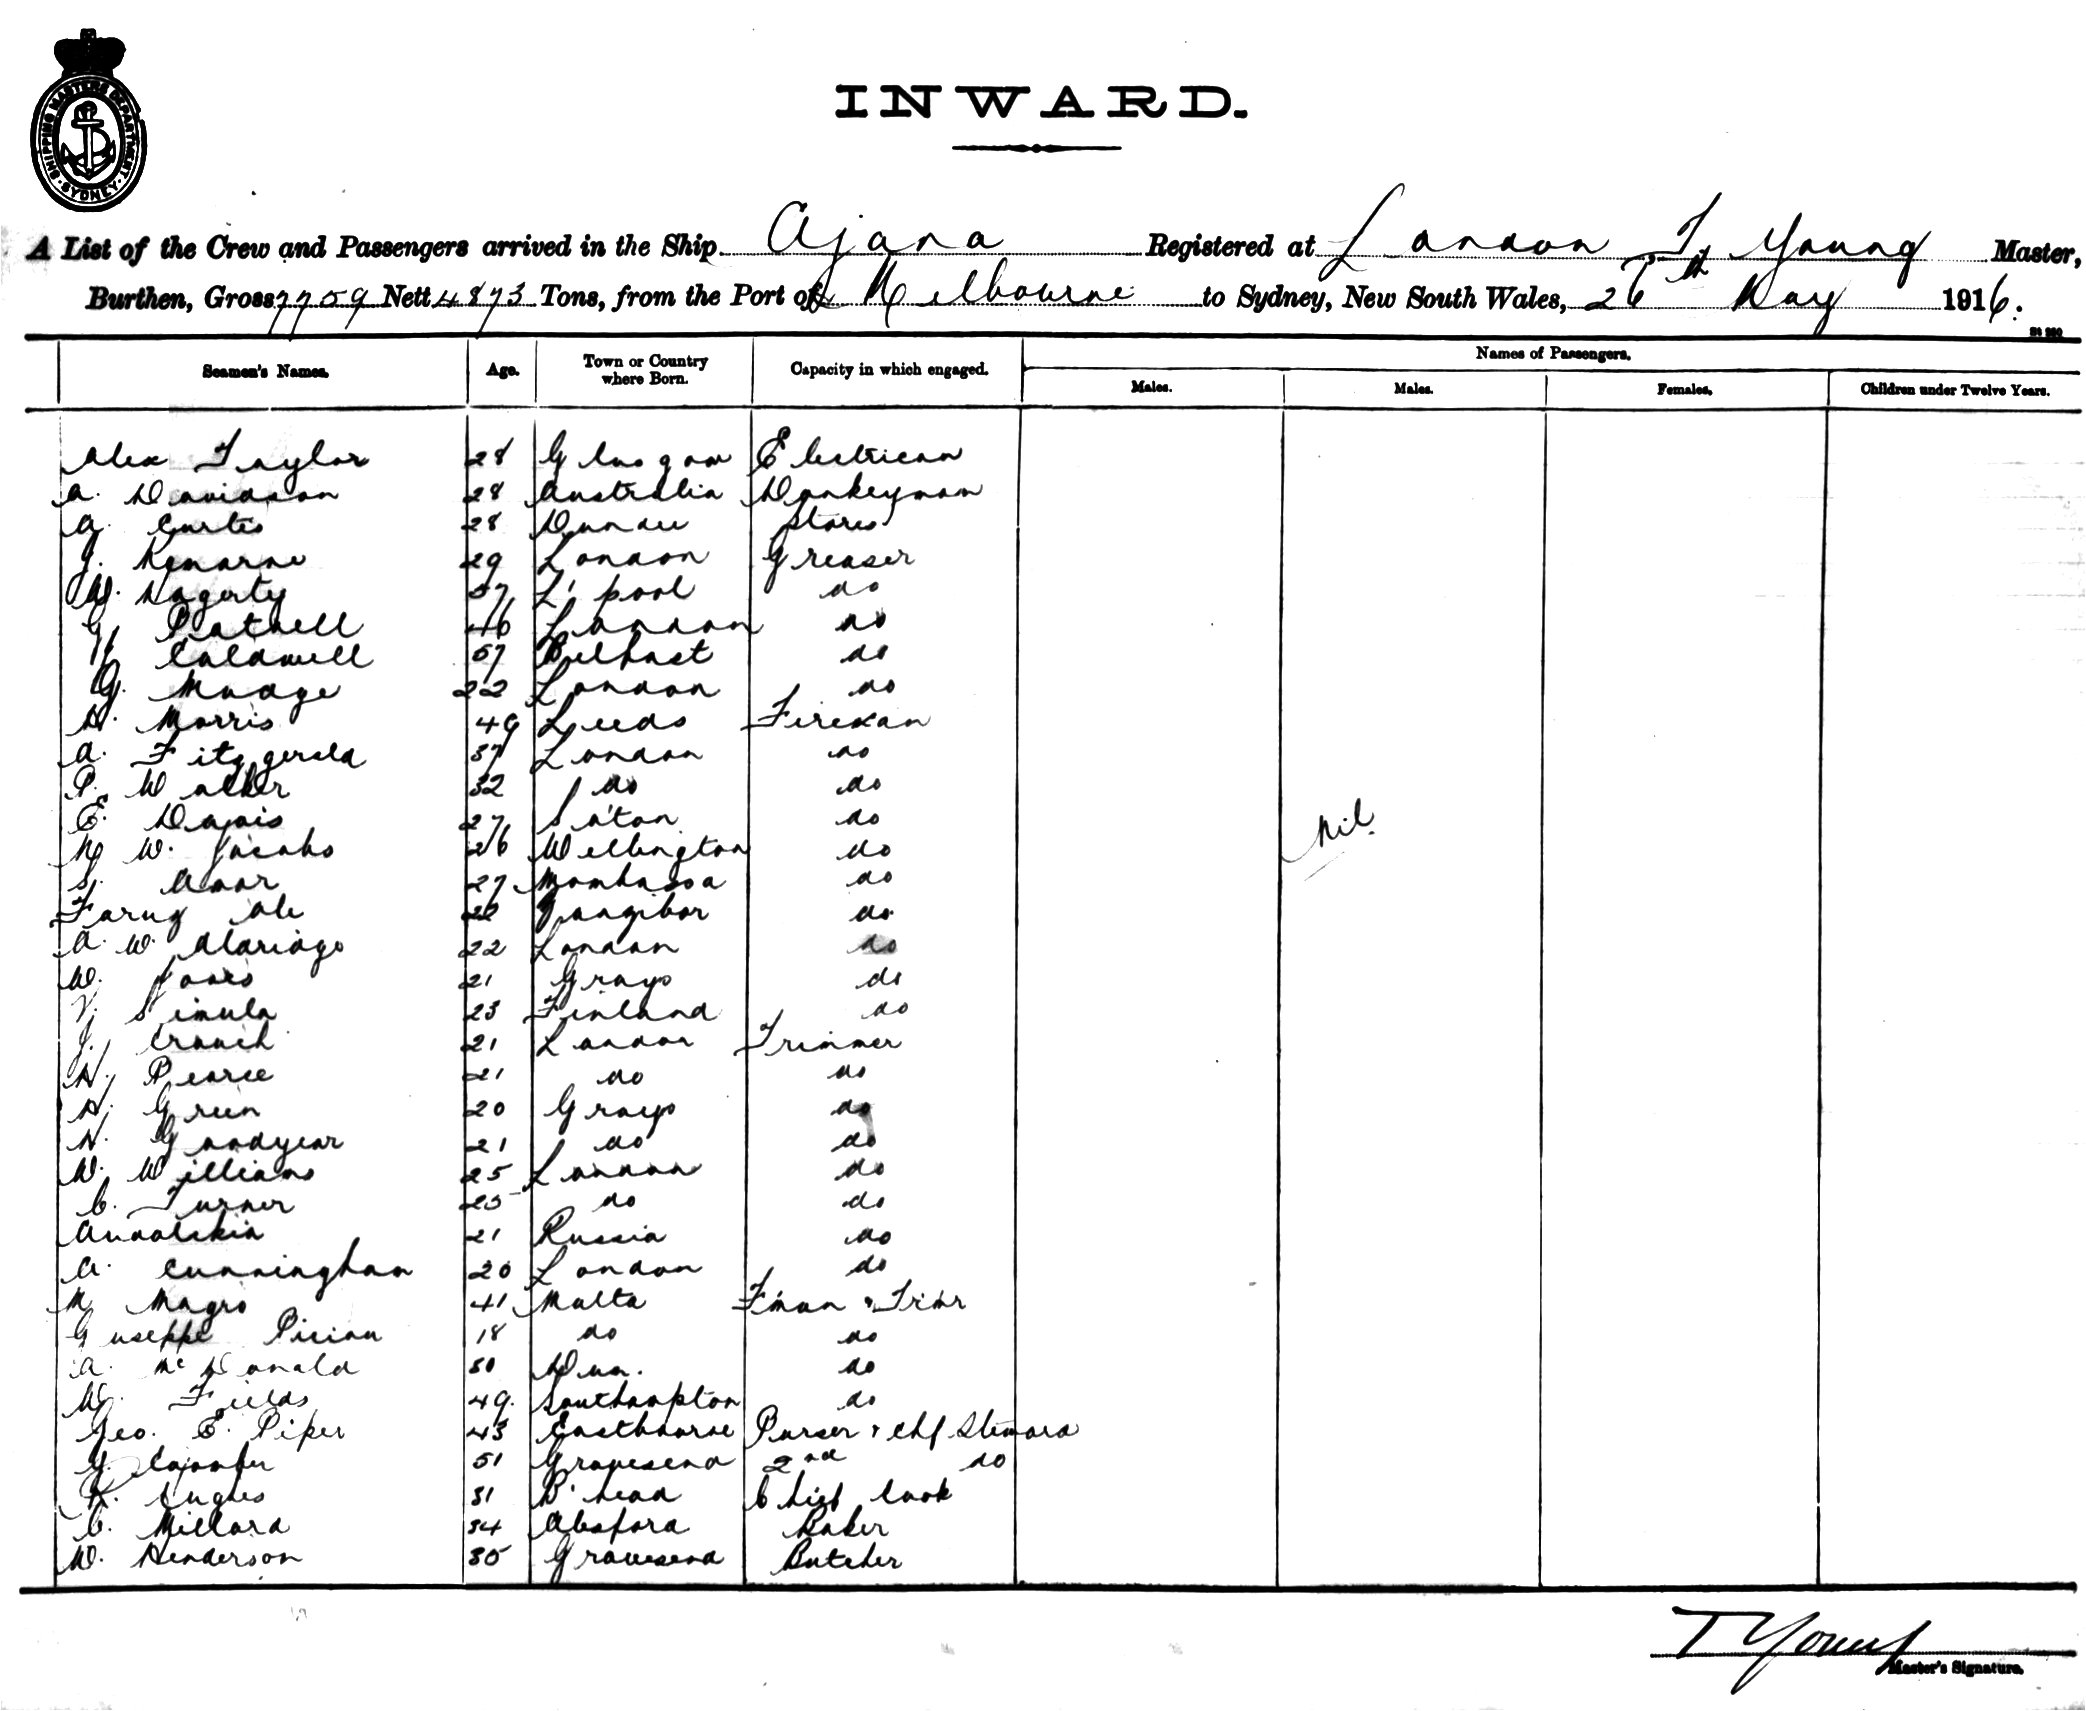 SHIPPING MASTERS DEPARTMENT
SYDNEY
INWARD.
A List of the Crew and Passengers arrived in the Ship Ajana Registered at London T. Young Master,
Burthen, Gross 7759 Nett 4873 Tons, from the Port of Melbourne to Sydney, New South Wales, 26th May 1916.
Names of Passengers.
Seamen's Names. Age. Town or Country where Born. Capacity in which engaged. Males. Males. Females. Children under Twelve Years.
Alex Taylor 28 Glasgow Electrician
A. Davidson 28 Australia Donkeyman
G. Curtis 28 Dundee Stores
J. 29 London Greaser
W. Hagerty 57 L'pool do
46 London do
Caldwell 57 Belfast do
G. Mudge 22 London do
H. Morris 49 Leeds Fireman
A. Fitzgerald 37 London do
P. Walker 32 do do
E. Davis 27 S'ton do
W. Jacobs 26 Wellington do
S. Amor 27 Mombassa do
Ale 22 Zangibar do
A. W. 22 London do
W. Jones 21 Grays do
Simula 23 Finland do
J. Crouch 21 London Trimmer
H. Pearce 21 do do
H. Green 20 Grays do
H. Goodyear 21 do do
W. Williams 25 London do
C. Turner 25 do do
21 Russia do
A. Cunningham 20 London do
M Magro 41 Malta F'man & Trim'r
Guseppe 18 do do
A. McDonald 30 Dun. do
W. Fields 49. Southampton do
Geo. E. Piper 43 Eastbourne Purser & Chf Steward
51 Gravesend 2nd do
Hughes 31 B'head Chief Cook
C. Millard 34 Baker
W. Henderson 35 Gravesend Butcher
Nil.
T Young
Master's Signature.